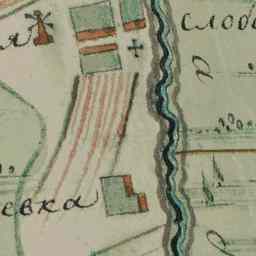 я слобо
евка